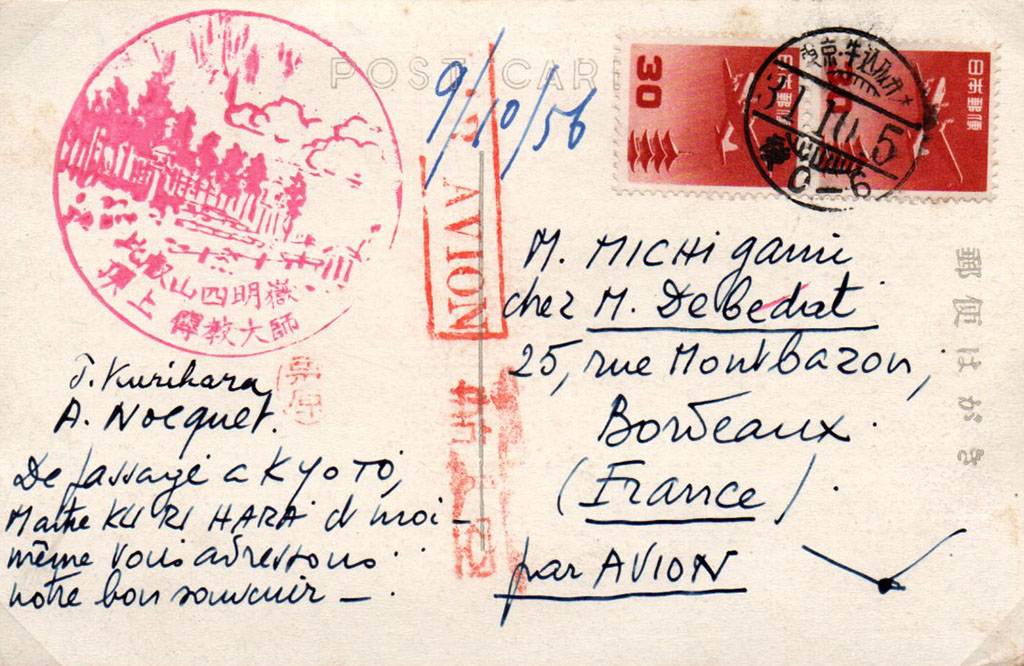 POST CAR
9/10/56
30
日本郵便
日本郵便
31.1.10.5
0-6
比叡山四明嶽
頂上 傳教大師
AVION
J. Kurihara
栗原
A. Nocquet.
De passage a KYOTO,
Maitre KURIHARA et moi-
même vous adressons
notre bon souvenir —.
M. MICHigami
chez M. Debedat
25, rue Montbazon,
Bordeaux.
(France).
par AVION
郵便はがき